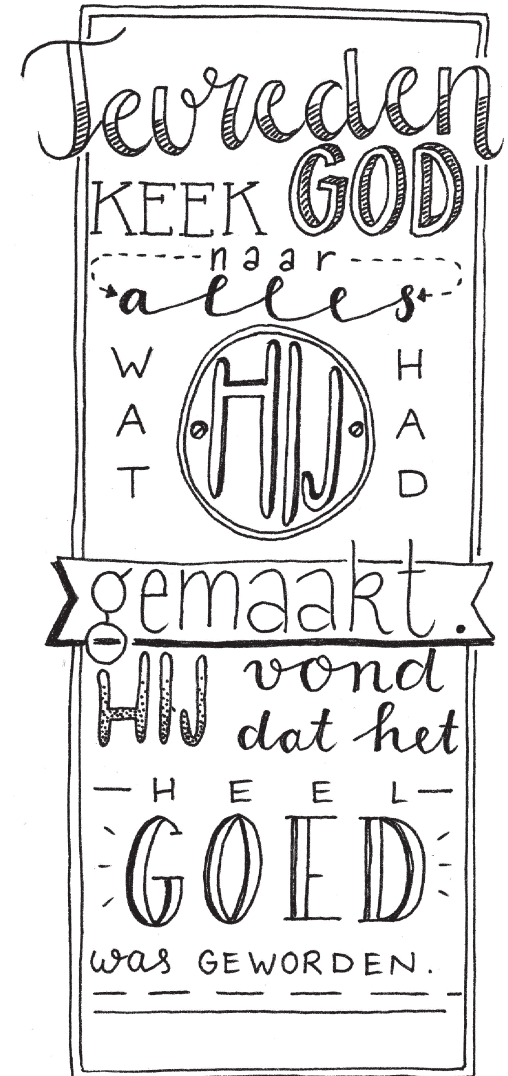 Tevreden
KEEK GOD
naar
alles
WAT HIJ HAD
gemaakt.
HIJ vond
dat het
HEEL
GOED
was GEWORDEN.